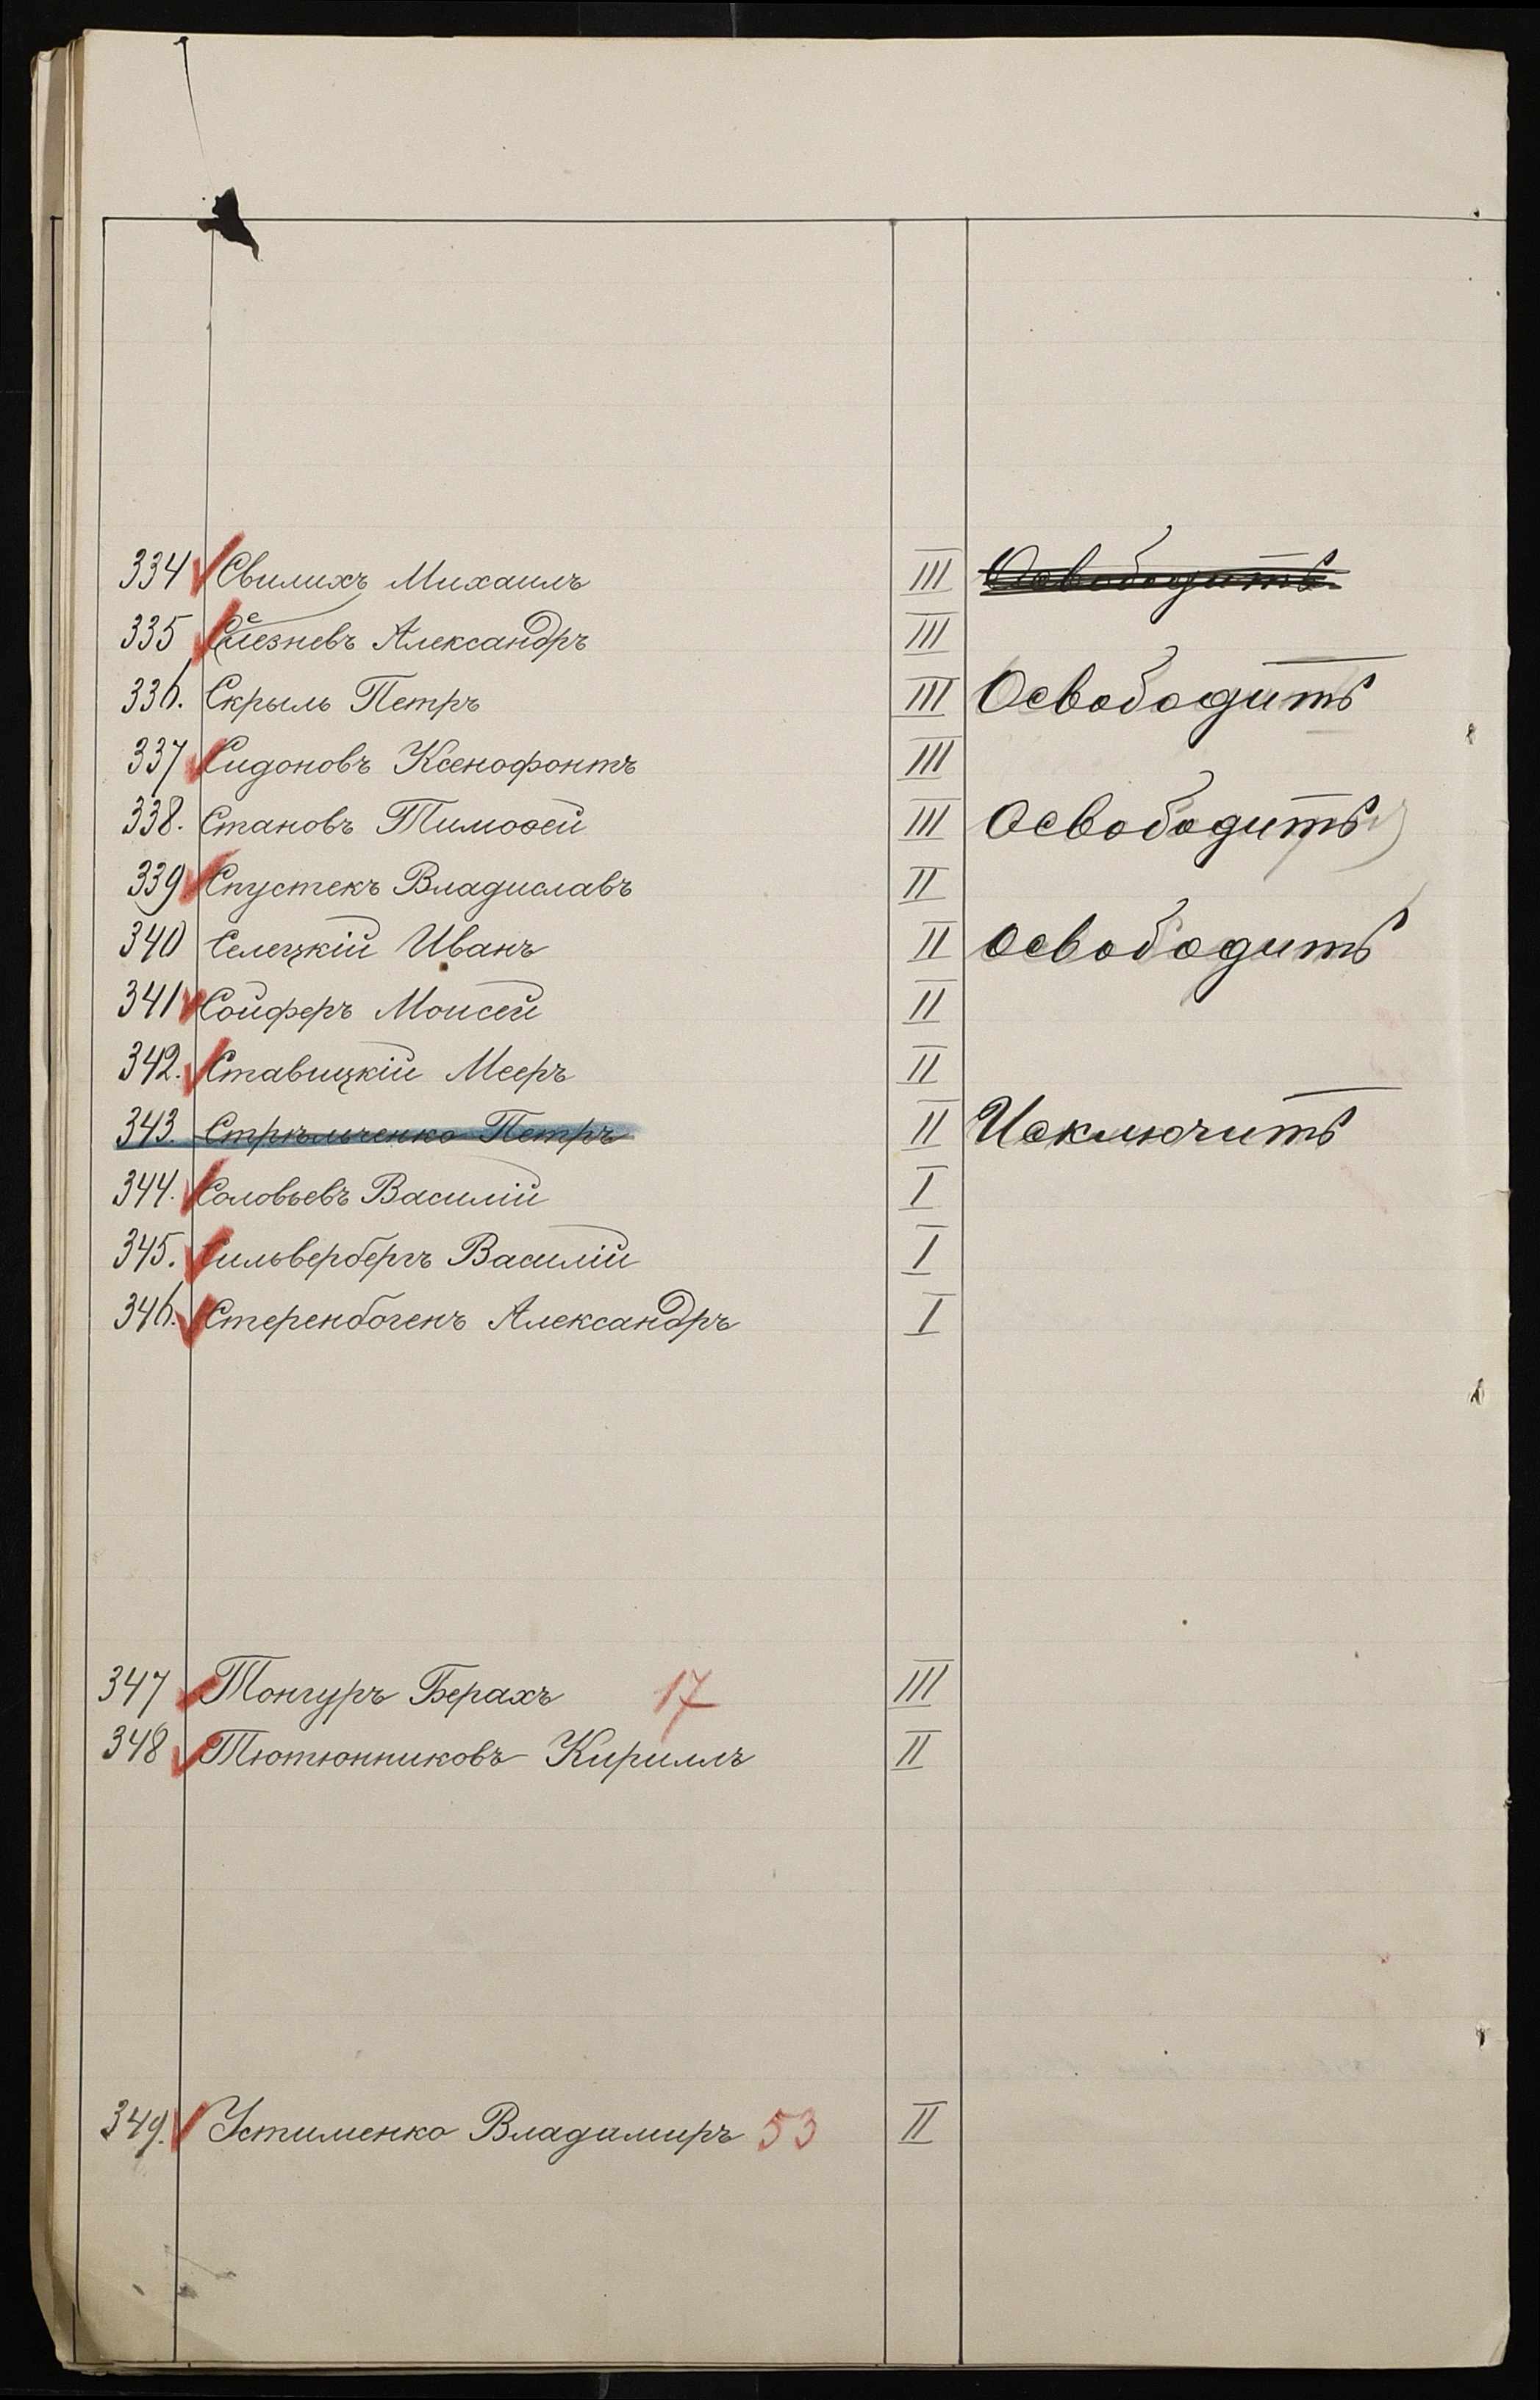 334 Свилихъ Михаилъ III Освободить
335 Селезневъ Александръ III
336. Скрыль Петръ III Освободить
337 Сидоновъ Ксенофонтъ III
338. Становъ Тимоѳей III Освободить
339 Спустекъ Владиславъ II
340 Селецкій Иванъ II Освободить
341 Сойферъ Моисей II
342. Ставицкій Мееръ II
343. Стрѣльченко Петръ II Исключить
344. Соловьевъ Василій I
345. Сильвербергъ Василій I
346. Стеренбогенъ Александръ I
347 Тонгуръ Берахъ 17 III
348 Тютюнниковъ Кириллъ II
349. Устименко Владимиръ 53 II